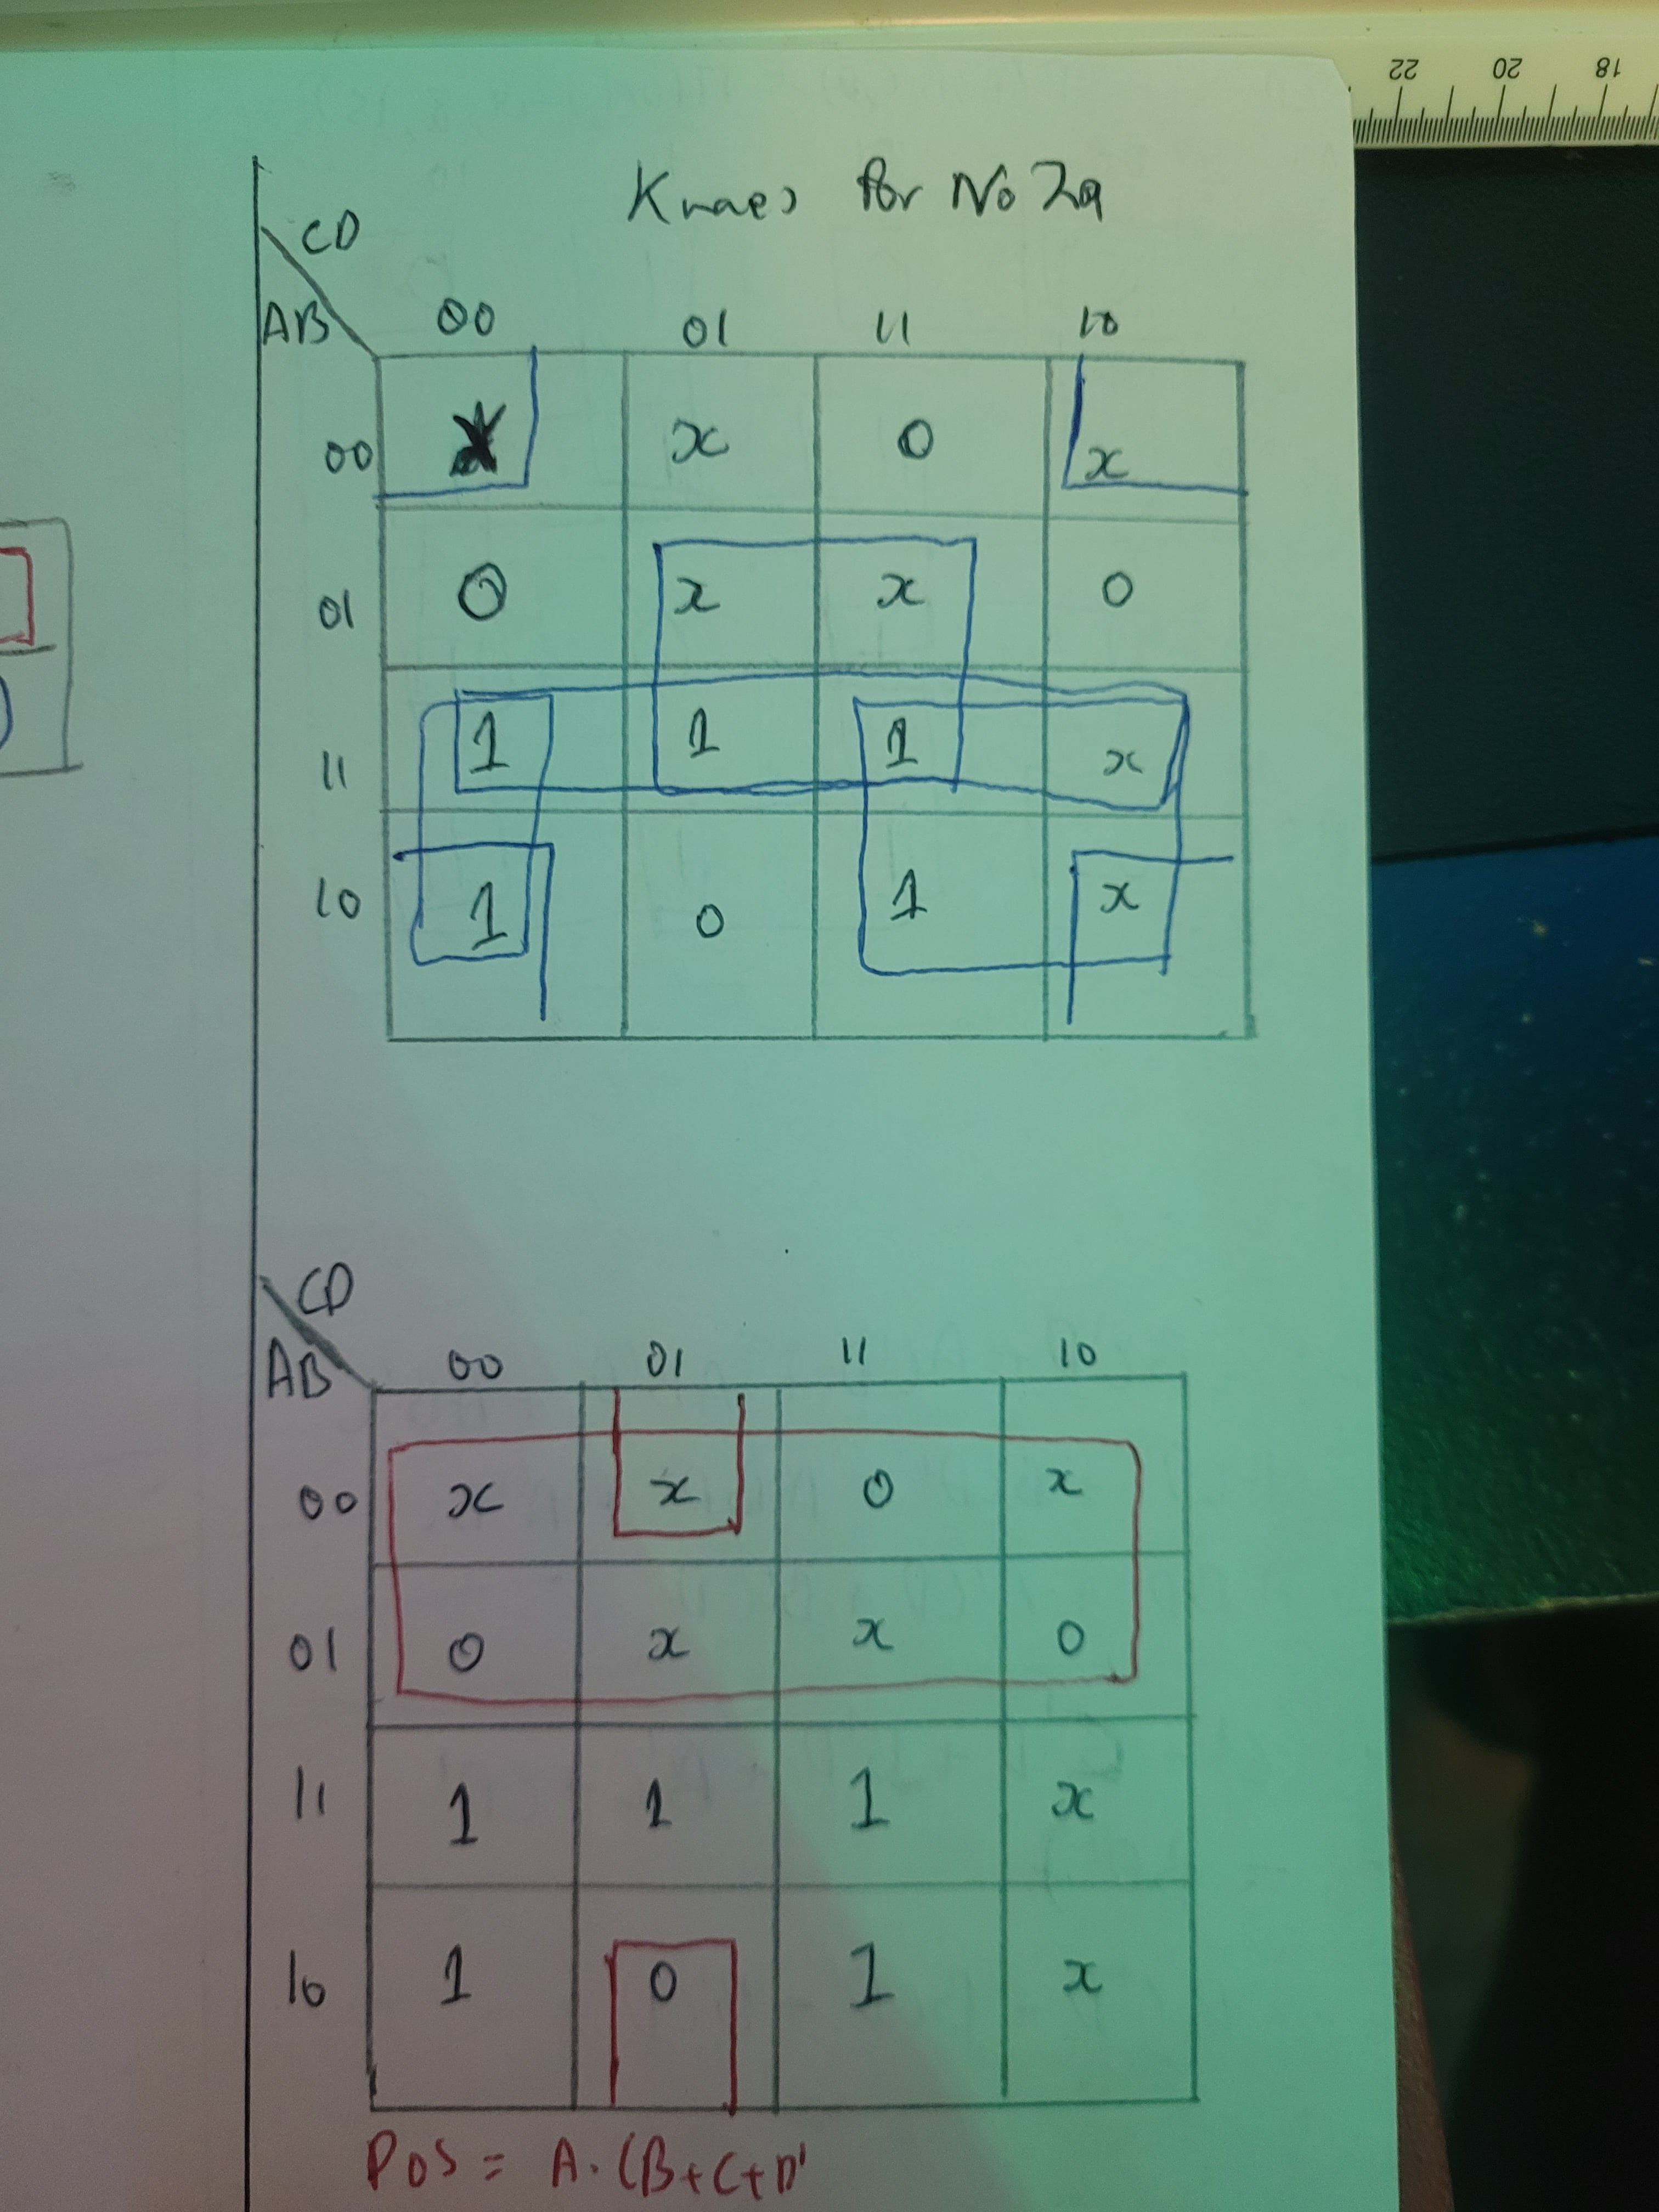 22 20 18
Kmaps for No 2a
CD
AB 00 01 11 10
00 x x 0 x
01 0 x x 0
11 1 1 1 x
10 1 0 1 x
CD
AB 00 01 11 10
00 x x 0 x
01 0 x x 0
11 1 1 1 x
10 1 0 1 x
POS = A.(B+C+D'